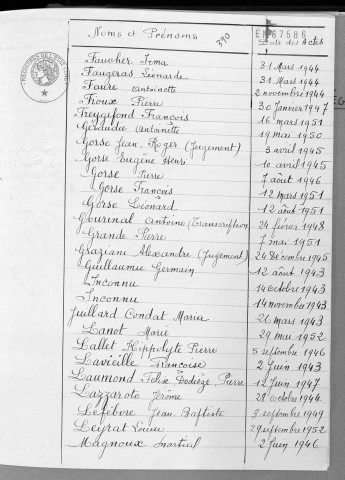 Noms et Prénoms
390
E Nº 67586
Date des Actes
Faucher Irma 31 Mars 1944
Faugeras Léonarde 31 Mars 1944
Faure Antoinette 2 novembre 1944
Froux Pierre 30 Janvier 1947
Freygefond François 16 mars 1951
Gerdudie Antoinette 19 mai 1950
Gorse Jean Roger (Jugement) 3 avril 1945
Gorse Eugène Henri 10 avril 1945
Gorse Pierre 7 août 1946
Gorse François 12 mars 1951
Gorse Léonard 12 août 1951
Gourinal Antoine (Transcription) 24 février 1948
Grande Pierre 7 mai 1951
Graziani Alexandre (Jugement) 24 Décembre 1945
Guillaumie Germain 12 août 1943
Inconnu 14 octobre 1943
Inconnu 14 novembre 1943
Juillard Condat Maria 26 mars 1943
Lanot Marie 29 mai 1952
Lallet Hippolyte Pierre 5 septembre 1946
Lavieille Françoise 2 Juin 1943
Laumond Félix Pierre 12 Juin 1947
Lazzaroto Jérôme 28 octobre 1944
Lefebvre Jean Baptiste 3 septembre 1949
Leyrat Louise 29 septembre 1952
Magnoux Martial 2 Juin 1946